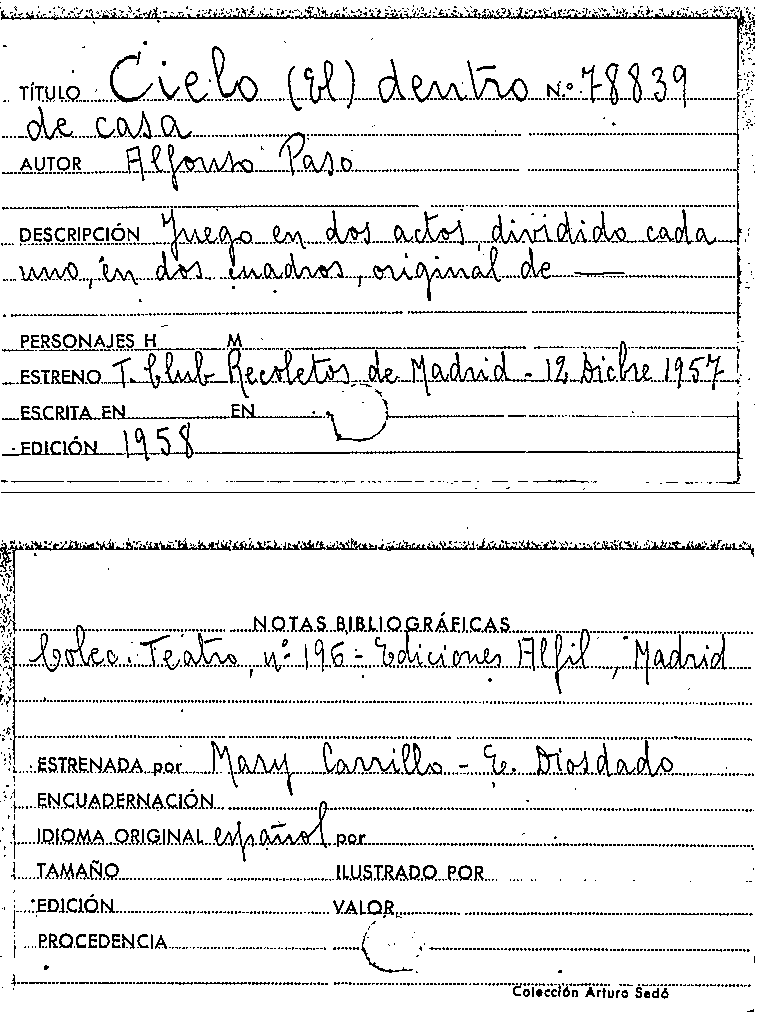 TÍTULO Cielo (El) dentro N.º 78839
de casa
AUTOR Alfonso Paso
DESCRIPCIÓN Juego en dos actos, dividido cada
uno, en dos cuadros, original de —
PERSONAJES H M
ESTRENO T. Club Recoletos de Madrid - 12 Dicbre 1957
ESCRITA EN EN
EDICIÓN 1958
NOTAS BIBLIOGRÁFICAS
Colec. Teatro, nº 196 - Ediciones Alfil, Madrid
ESTRENADA por Mary Carrillo - E. Diosdado
ENCUADERNACIÓN
IDIOMA ORIGINAL español por
TAMAÑO ILUSTRADO POR
EDICIÓN VALOR
PROCEDENCIA
Colección Arturo Sedó